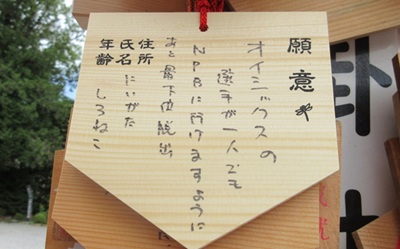 願意
オイシックスの
選手が一人でも
NPBに行けますように
あと最下位脱出
住所
氏名 にいがた
年齢 しろねこ